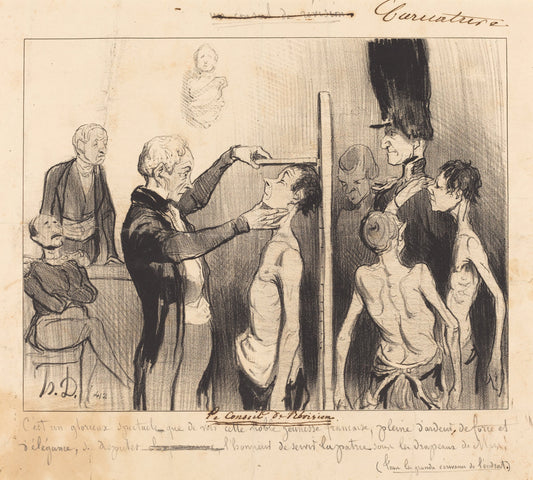 un conseil de révision
Caricatures
h.D.
412
Le Conseil de Révision
C'est un glorieux spectacle que de voir cette noble jeunesse française, pleine d'ardeur, de force et
d'élégance, se disputer l'honneur de servir la patrie sous les drapeaux de